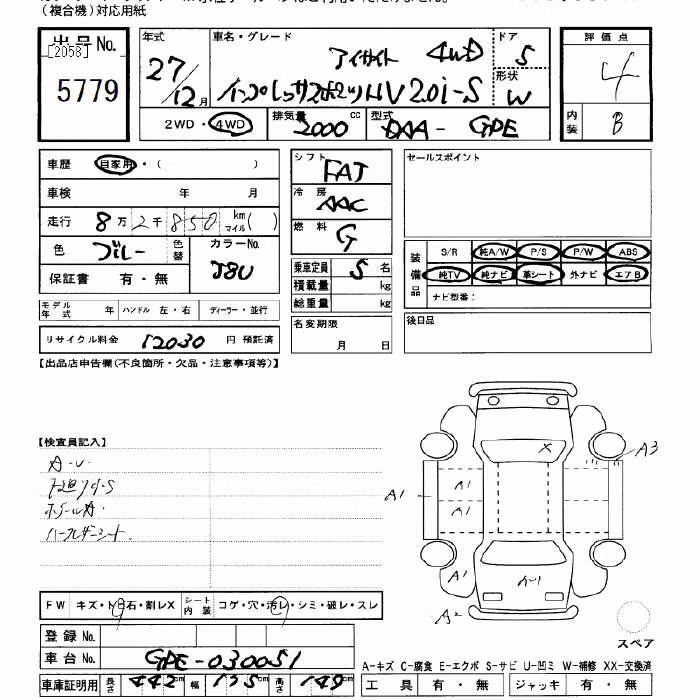 (複合機)対応用紙
出品No.
[2058]
5779
年式
27/12月
車名・グレード
アイサイト 4WD
インプレッサスポーツHV 2.0i-S
ドア
5
形状
W
2WD・4WD
排気量 2000 cc
型式 DAA- GPE
評価点
4
内装
B
車歴 自家用・( )
車検 年 月
走行 8万2千850 km マイル( )
色 ブルー 色替
カラーNo.
J8U
保証書 有・無
モデル年式 年 ハンドル 左・右 ディーラー・並行
リサイクル料金 12030 円 預託済
シフト FAT
冷房 AAC
燃料 G
乗車定員 5 名
積載量 kg
総重量 kg
名変期限
月 日
セールスポイント
装備品
S/R 純A/W P/S P/W ABS
純TV 純ナビ 革シート 外ナビ エアB
ナビ型番:
後日品
【出品店申告欄(不良箇所・欠品・注意事項等)】
【検査員記入】
A-U
下廻りS
ホイールA
ハーフレザーシート
FW キズ・トビ石・割レX
シート内装 コゲ・穴・汚レ・シミ・破レ・スレ
登録No.
車台No. GPE-030051
車庫証明用 長さ 442 cm 幅 175 cm 高さ 149 cm
X
A3
A1
A1
A1
A1
A2
A-1
A1
スペア
A-キズ C-腐食 E-エクボ S-サビ U-凹ミ W-補修 XX-交換済
工具 有・無 ジャッキ 有・無